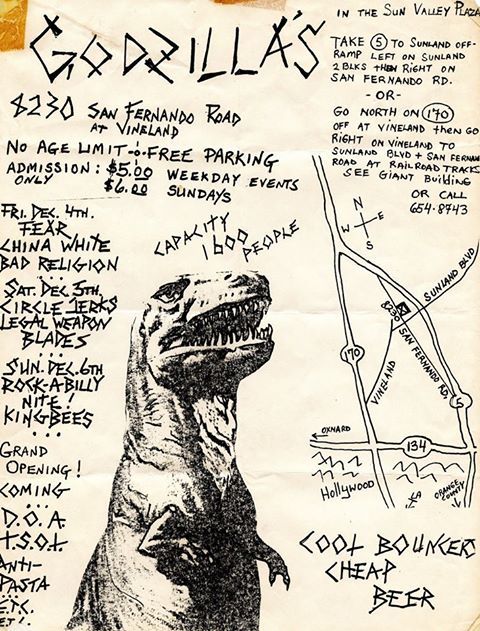 IN THE SUN VALLEY PLAZA
GODZILLA'S
TAKE 5 TO SUNLAND OFF-
RAMP LEFT ON SUNLAND
2 BLKS THEN RIGHT ON
SAN FERNANDO RD.
-OR-
GO NORTH ON 170
OFF AT VINELAND THEN GO
RIGHT ON VINELAND TO
SUNLAND BLVD + SAN FERNAN
ROAD AT RAILROAD TRACKS
SEE GIANT BUILDING
OR CALL
654-8743
8230 SAN FERNANDO ROAD
AT VINELAND
NO AGE LIMIT FREE PARKING
ADMISSION: $5.00 WEEKDAY EVENTS
ONLY $6.00 SUNDAYS
FRI. DEC. 4TH.
FEAR
CHINA WHITE
BAD RELIGION
SAT. DEC. 5TH.
CIRCLE JERKS
LEGAL WEAPON
BLADES
SUN. DEC. 6TH
ROCK-A-BILLY
NITE!
KINGBEES
GRAND
OPENING!
COMING
D.O.A.
T.S.O.L.
ANTI-
PASTA
ETC.
ET!.
CAPACITY
1600 PEOPLE
N
W E
S
SUNLAND BLVD
8230
SAN FERNANDO RD.
VINELAND
170
5
OXNARD
134
HOLLYWOOD
LA
ORANGE
COUNTY
COOL BOUNCERS
CHEAP
BEER